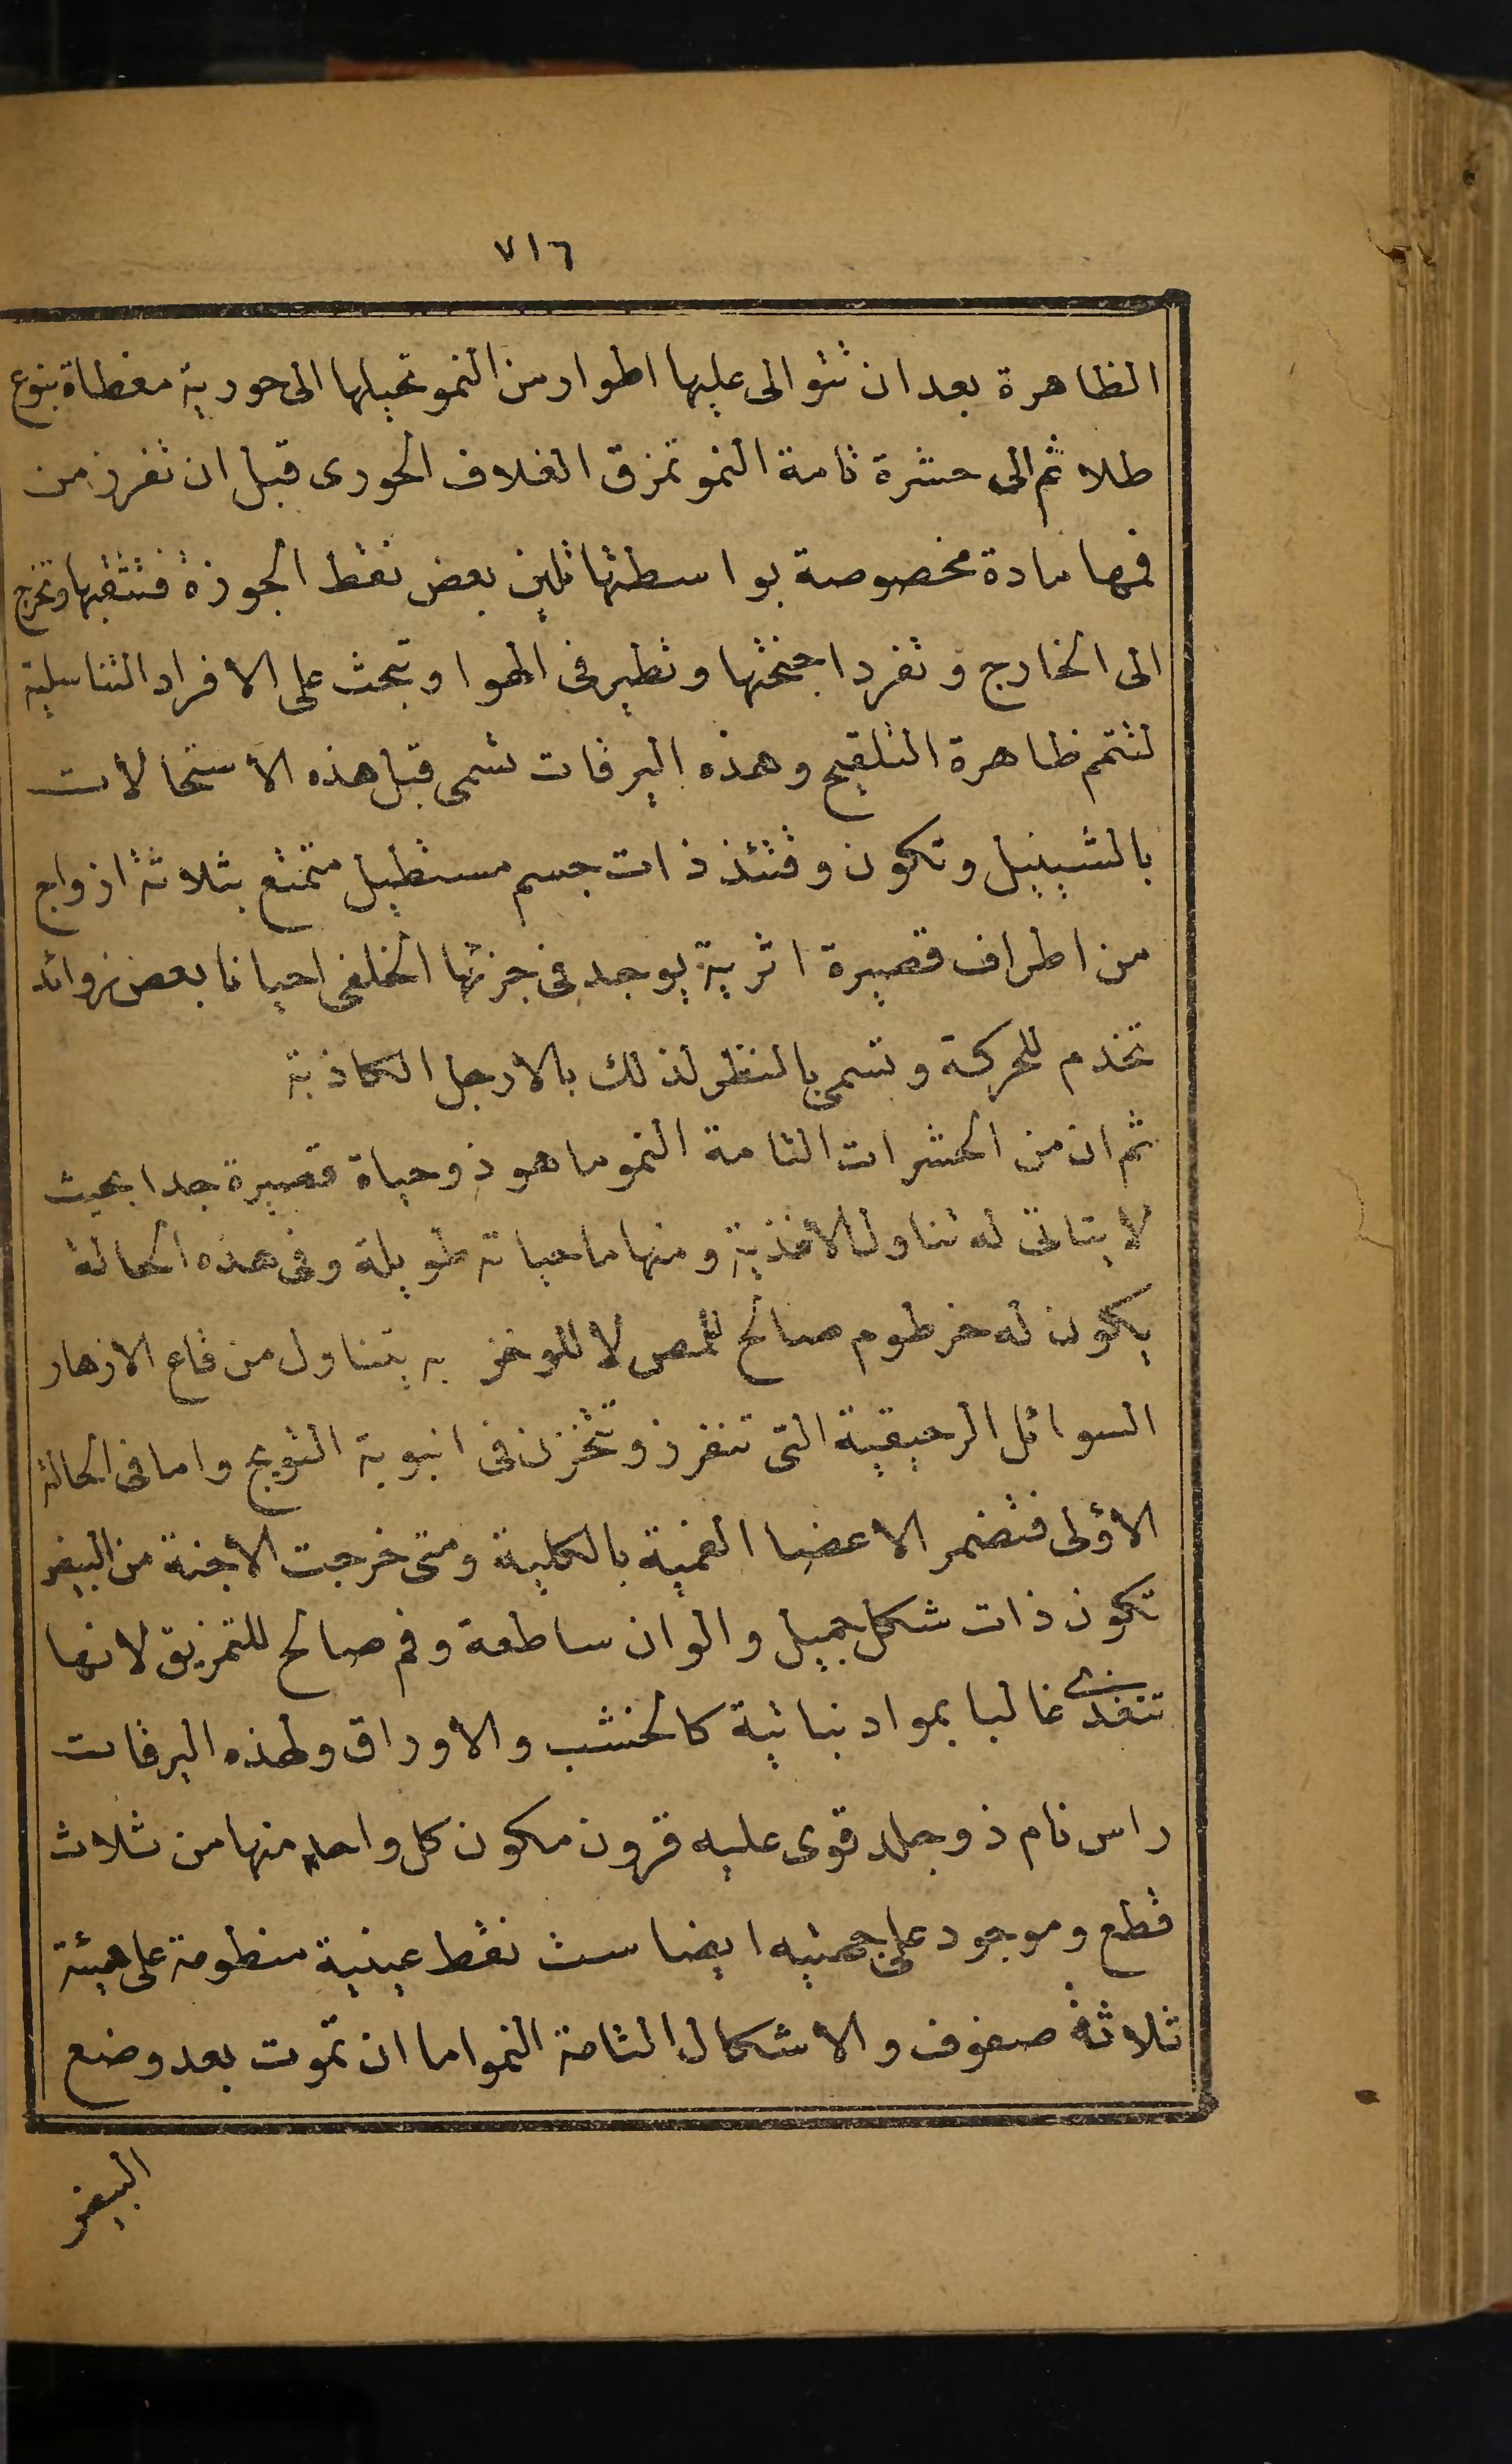 ٧١٦
الظاهرة بعد ان تتوالى عليها اطوار من النمو تحيلها الى حورية مغطاة بنوع
طلا ثم الى حشرة تامة النمو تمزق الغلاف الحورى قبل ان تفرز من
فمها مادة مخصوصة بواسطتها تلين بعض نقط الجوزة فتثقبها وتخرج
الى الخارج وتفرد اجنحتها وتطير فى الهوا وتبحث على الافراد التناسلية
لتتم ظاهرة التلقيح وهذه اليرقات تسمى قبل هذه الأستحالات
بالشينيل وتكون وقتئذ ذات جسم مستطيل متمتع بثلاثة ازواج
من اطراف قصيرة اثرية يوجد فى جزئها الخلفى احيانا بعض زوائد
تخدم للحركة وتسمى بالنظر لذلك بالارجل الكاذبة
ثم ان من الحشرات التامة النمو ما هو ذو حياة قصيرة جدا بحيث
لا يتاتى له تناول الأغذية ومنها ما حياته طويلة وفى هذه الحالة
يكون له خرطوم صالح للمص لا للوخز به يتناول من قاع الازهار
السوائل الرحيقية التى تنفرز وتختزن فى انبوبة التويج واما فى الحالة
الأولى فتضمر الاعضا الفمية بالكلية ومتى خرجت الأجنة من البيض
تكون ذات شكل جميل والوان ساطعة وفم صالح للتمزيق لانها
تتغذى غالبا بمواد نباتية كالخشب والأوراق ولهذه اليرقات
راس تام ذو جلد قوى عليه قرون مكون كل واحد منها من ثلاث
قطع وموجود على جهتيه ايضا ست نقط عينية منظومة على هيئة
ثلاثة صفوف والاشكال التامة النمو اما ان تموت بعد وضع
البيض